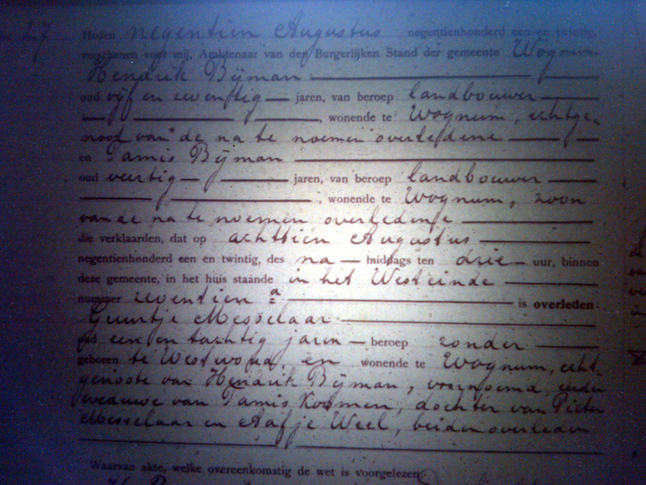 27 Heden negentien Augustus negentienhonderd een en twintig,
verschenen voor mij, Ambtenaar van den Burgerlijken Stand der gemeente Wognum
Hendrik Bijman
oud vijf en zeventig jaren, van beroep landbouwer
, wonende te Wognum, echtge-
noot van de na te noemen overledene
en Tamis Bijman
oud veertig jaren, van beroep landbouwer
, wonende te Wognum, zoon
van de na te noemen overledene
die verklaarden, dat op achttien Augustus
negentienhonderd een en twintig, des na middags ten drie uur, binnen
deze gemeente, in het huis staande in het Westeinde
nummer zeventien a is overleden:
Guurtje Messelaar
een en tachtig jaren beroep zonder
geboren te Westwoud en wonende te Wognum, echt-
genoote van Hendrik Bijman, voornoemd, eerder
weduwe van Tamis Koomen, dochter van Pieter
Messelaar en Aafje Weel, beiden overleden
Waarvan akte, welke overeenkomstig de wet is voorgelezen.